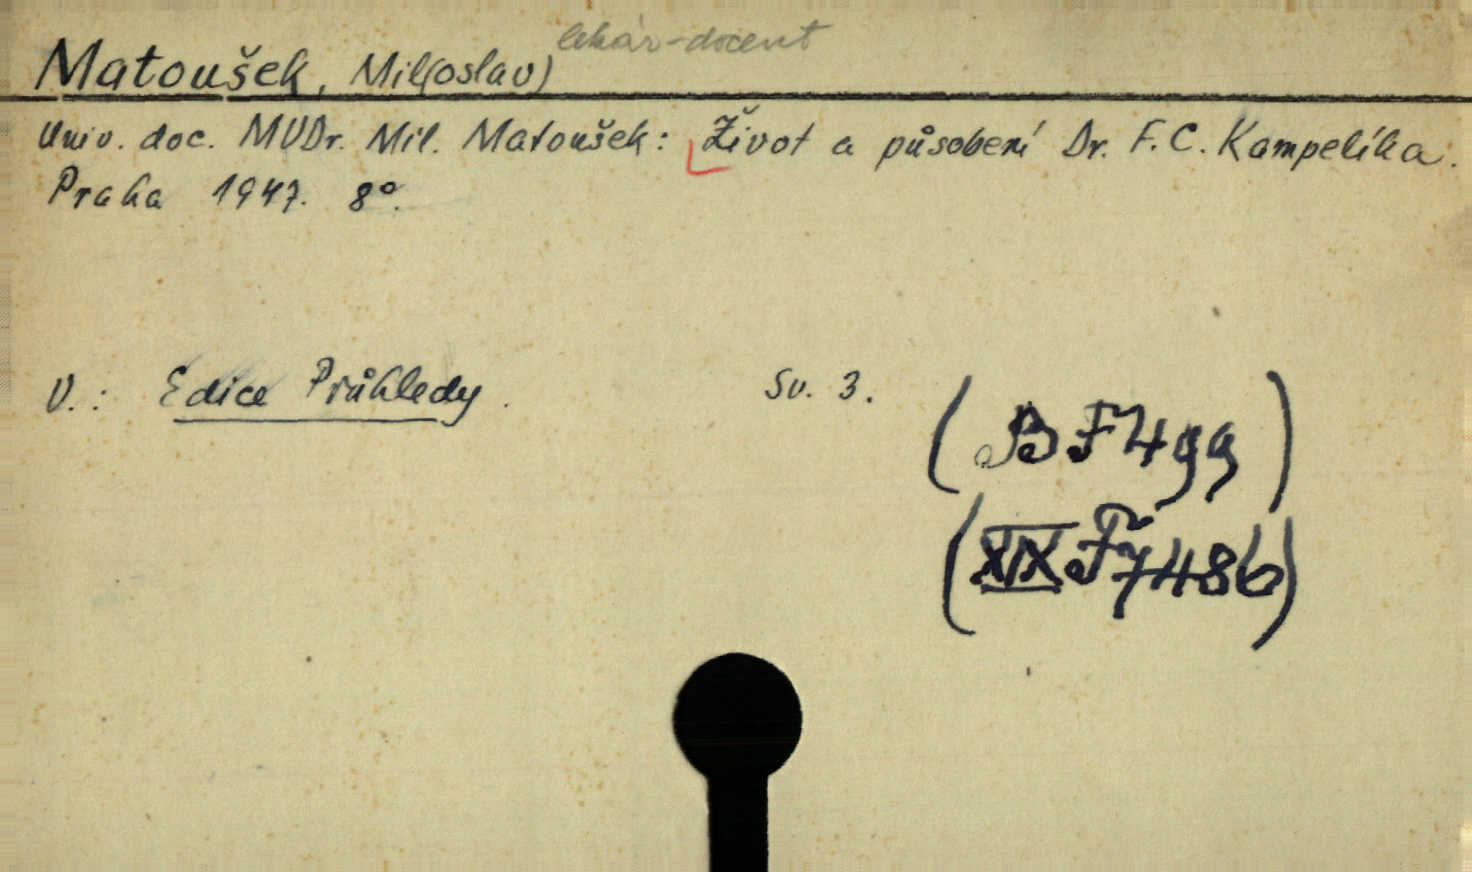 lékár-docent
Matoušek, Mil(oslav)
Univ. doc. MUDr. Mil. Matoušek: Život a působení Dr. F. C. Kampelíka.
Praha 1947. 8°.
V.: Edice Průhledy. Sv. 3.
(BF 499)
(XIX F 7486)